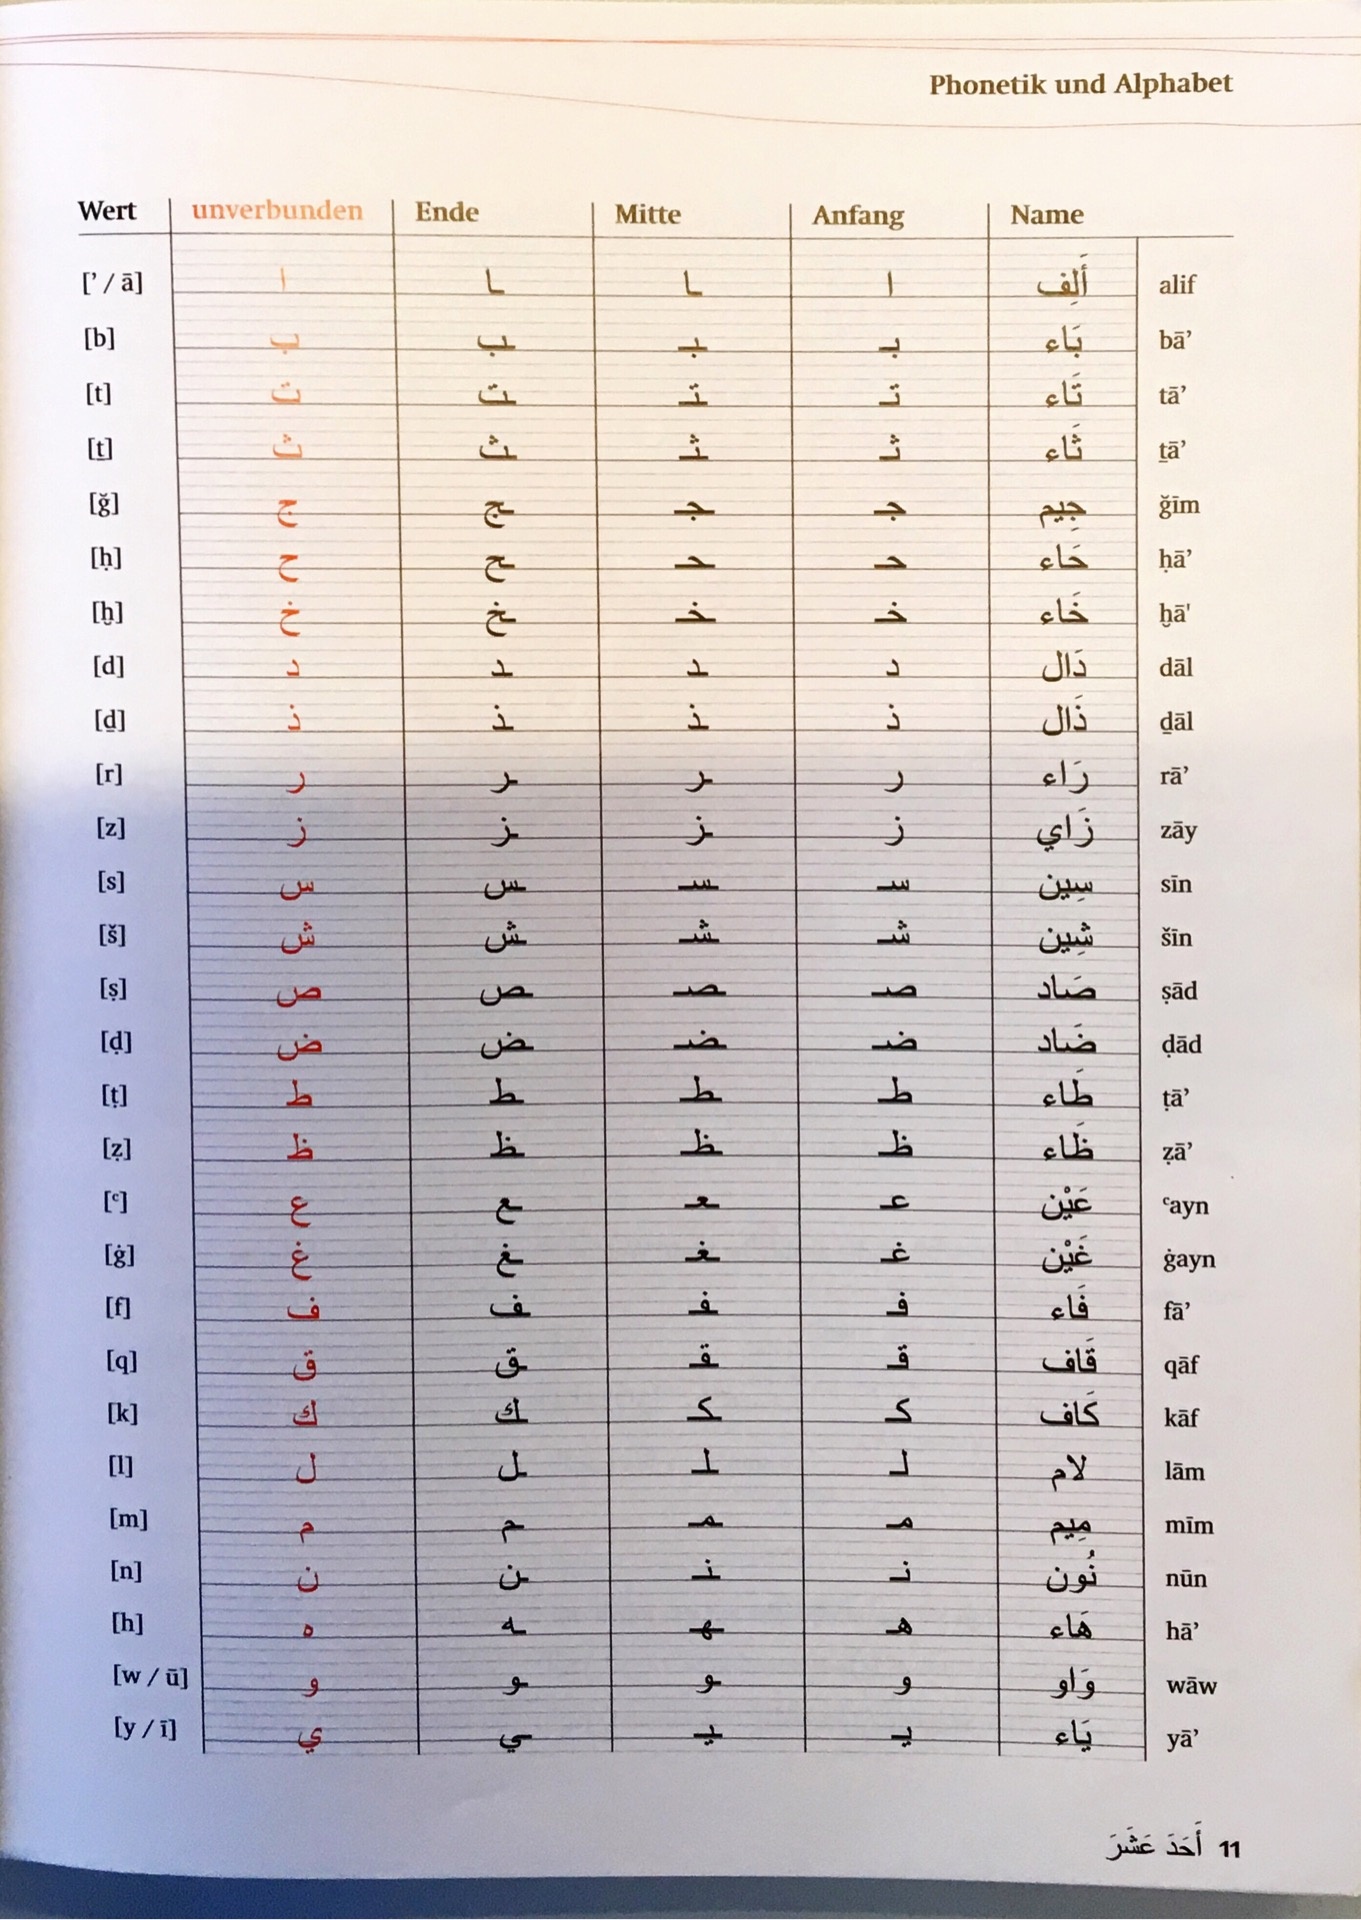 Phonetik und Alphabet
Wert unverbunden Ende Mitte Anfang Name
[’ / ā] ا ـا ـا ا أَلِف alif
[b] ب ـب ـبـ بـ بَاء bā’
[t] ت ـت ـتـ تـ تَاء tā’
[ṯ] ث ـث ـثـ ثـ ثَاء ṯā’
[ğ] ج ـج ـجـ جـ جِيم ğīm
[ḥ] ح ـح ـحـ حـ حَاء ḥā’
[ḫ] خ ـخ ـخـ خـ خَاء ḫā'
[d] د ـد ـد د دَال dāl
[ḏ] ذ ـذ ـذ ذ ذَال ḏāl
[r] ر ـر ـر ر رَاء rā’
[z] ز ـز ـز ز زَاي zāy
[s] س ـس ـسـ سـ سِين sīn
[š] ش ـش ـشـ شـ شِين šīn
[ṣ] ص ـص ـصـ صـ صَاد ṣād
[ḍ] ض ـض ـضـ ضـ ضَاد ḍād
[ṭ] ط ـط ـطـ طـ طَاء ṭā’
[ẓ] ظ ـظ ـظـ ظـ ظَاء ẓā’
[ʿ] ع ـع ـعـ عـ عَيْن ʿayn
[ġ] غ ـغ ـغـ غـ غَيْن ġayn
[f] ف ـف ـفـ فـ فَاء fā’
[q] ق ـق ـقـ قـ قَاف qāf
[k] ك ـك ـكـ كـ كَاف kāf
[l] ل ـل ـلـ لـ لام lām
[m] م ـم ـمـ مـ مِيم mīm
[n] ن ـن ـنـ نـ نُون nūn
[h] ه ـه ـهـ هـ هَاء hā’
[w / ū] و ـو ـو و وَاو wāw
[y / ī] ي ـي ـيـ يـ يَاء yā’
أَحَدَ عَشَرَ 11